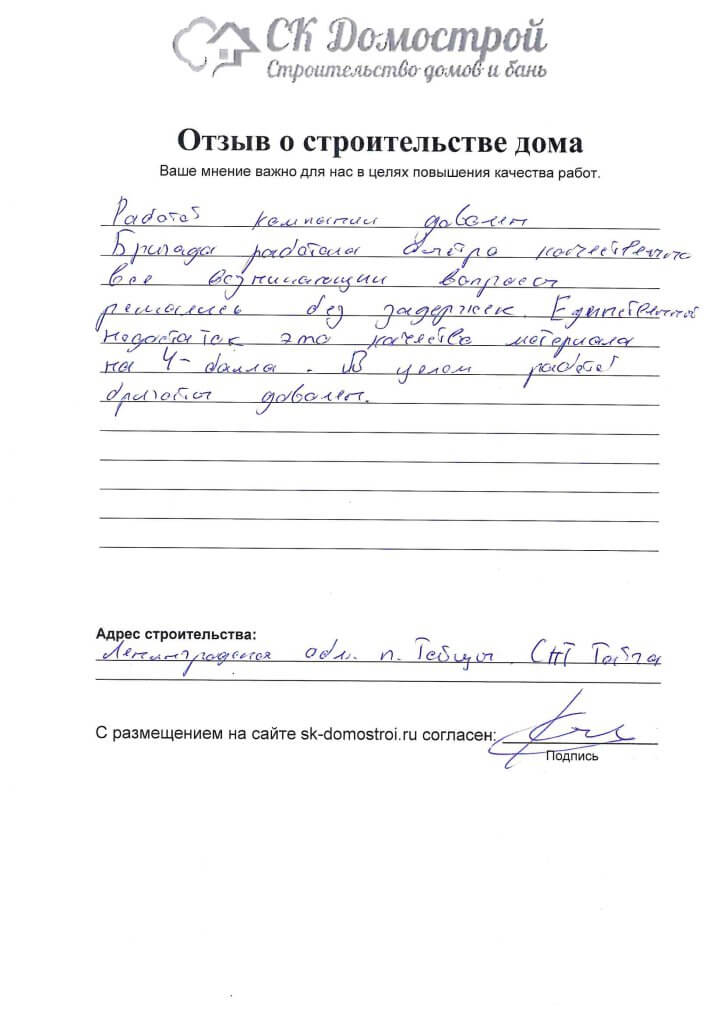 СК Домострой
Строительство домов и бань
Отзыв о строительстве дома
Ваше мнение важно для нас в целях повышения качества работ.
Работой компании доволен
Бригада работала быстро качественно
все возникающии вопросы
решались без задержек. Единственной
недостаток это качество материала
на 4- балла. В целом работой
бригады доволен.
Адрес строительства:
Ленинградская обл. п. Тайцы СНТ Тайга
С размещением на сайте sk-domostroi.ru согласен:
Подпись